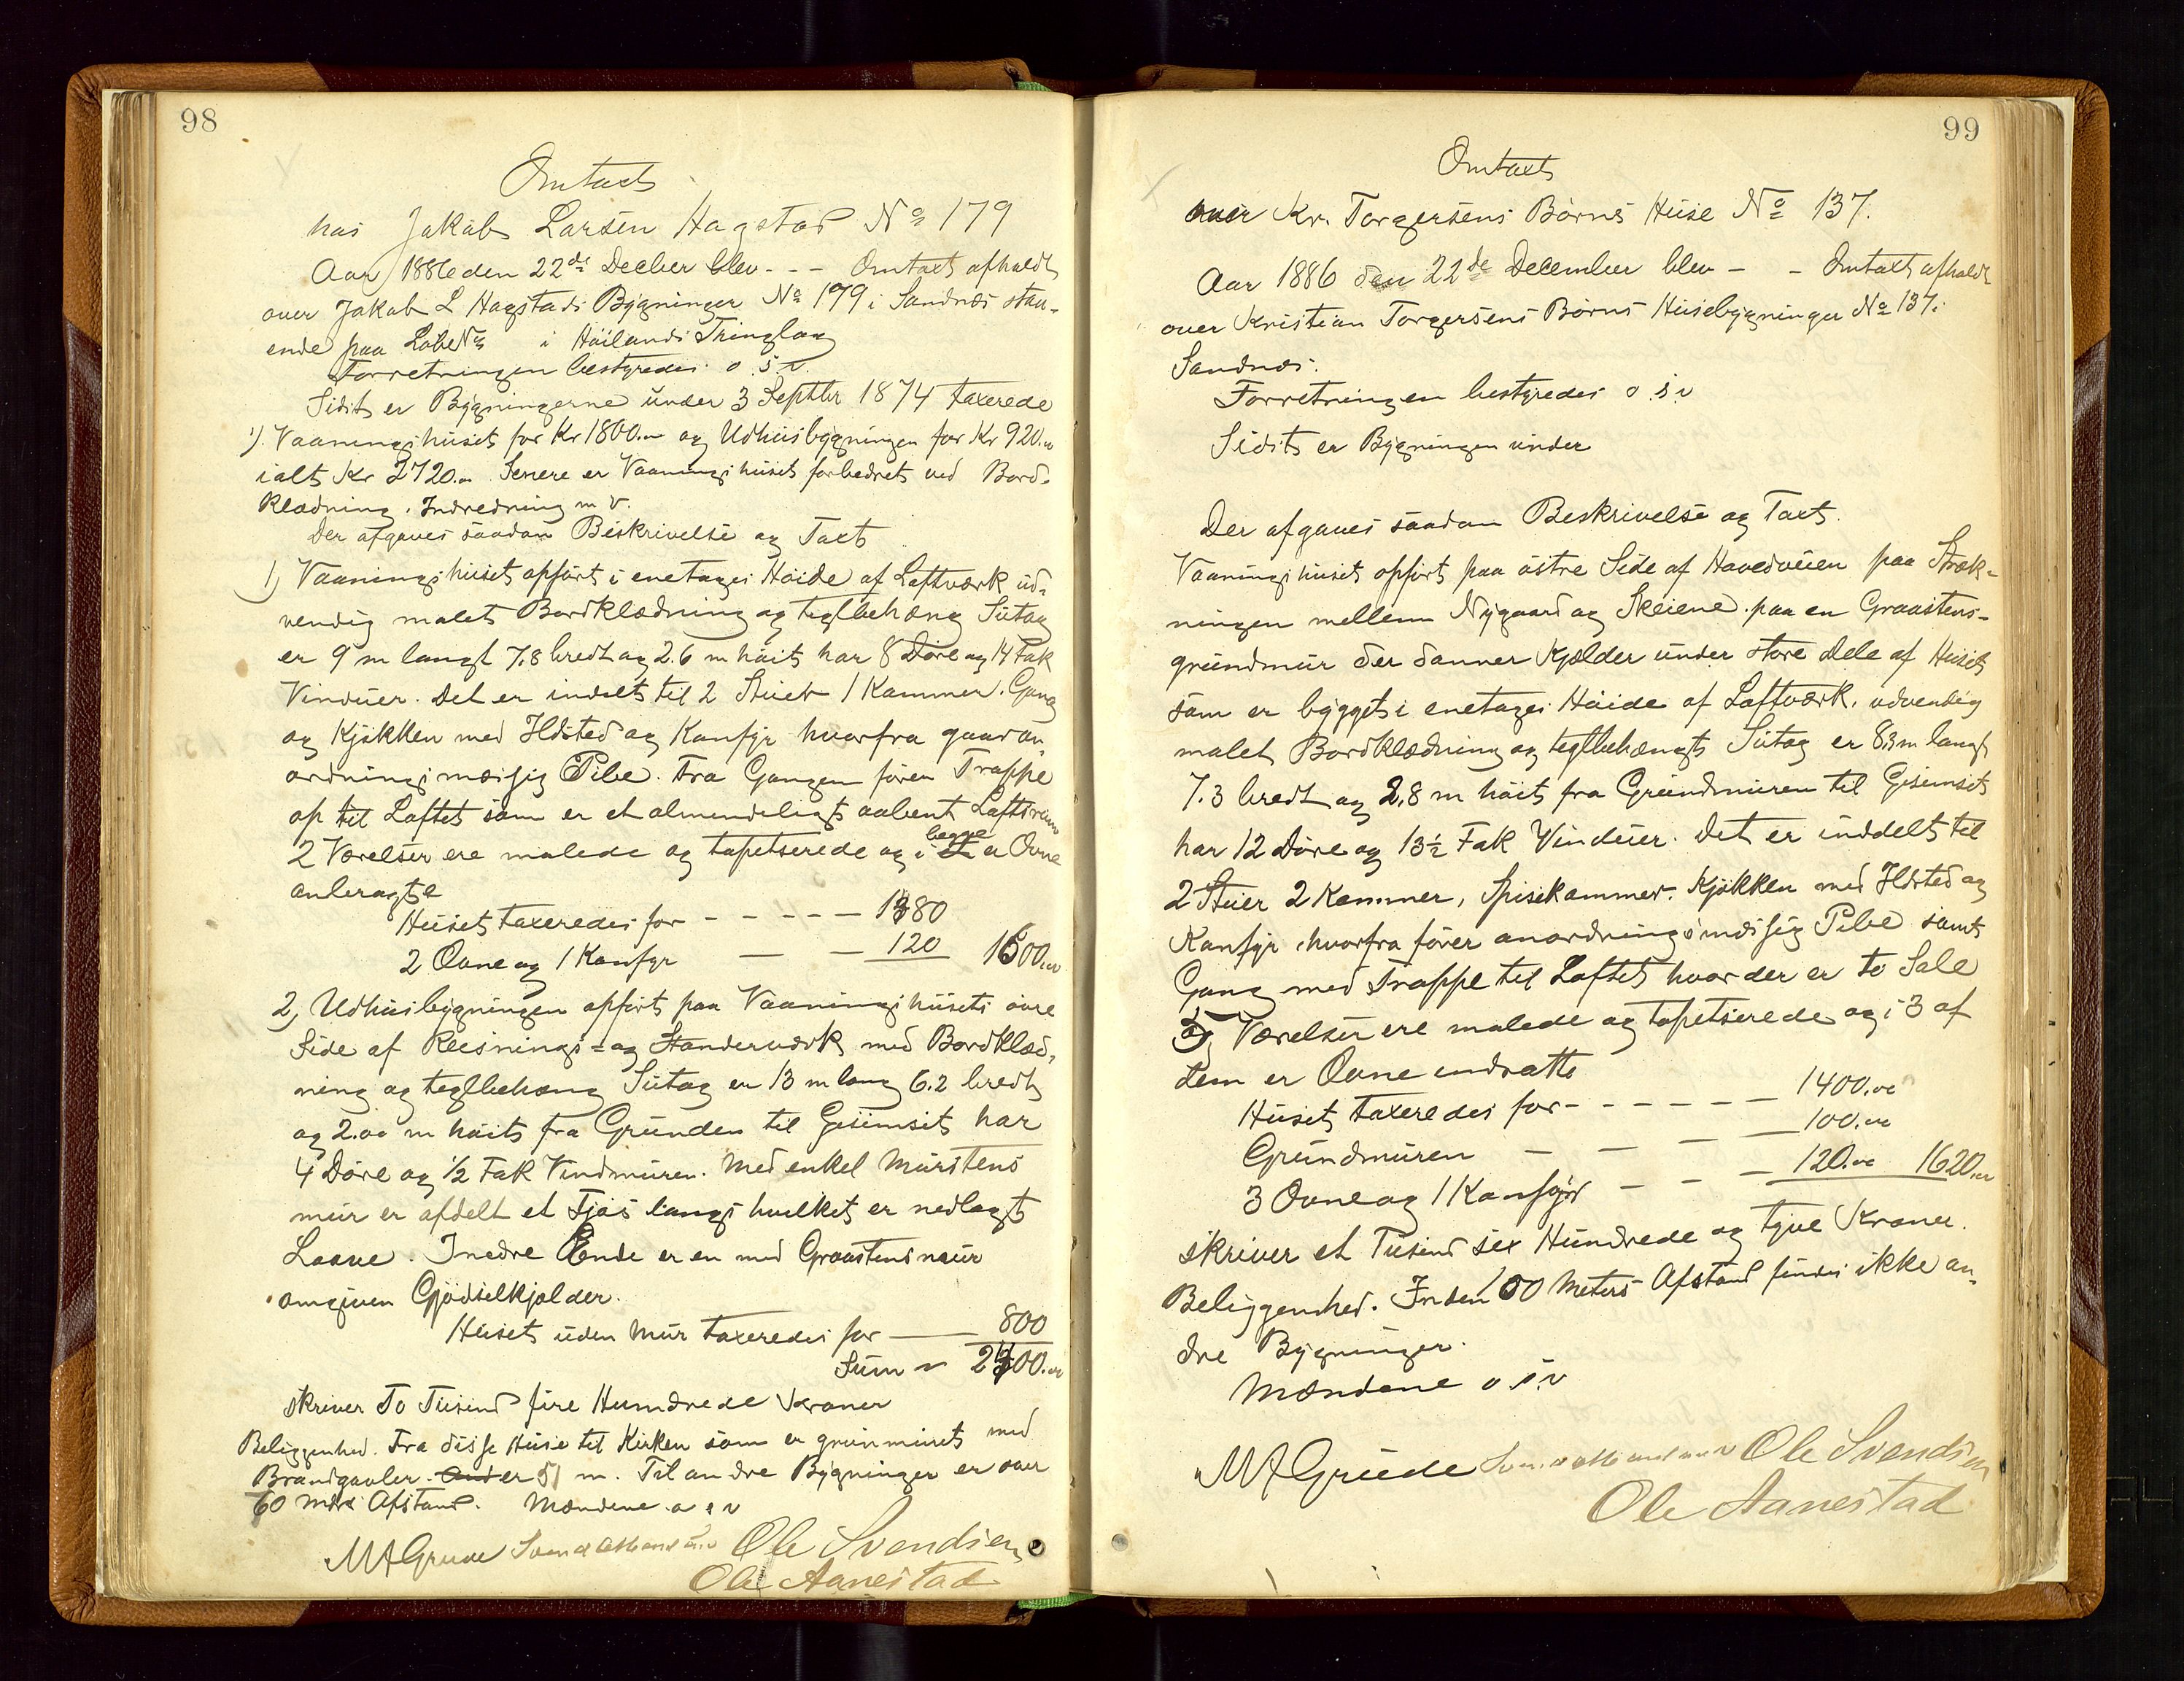 98
Omtaxt
hos Jakob Larsen Hagstad No 179
Aar 1886 den 22de Decber blev - - - Omtaxt afholdt
over Jakob L Hagstads Bygninger No 179 i Sandnæs staa-
ende paa LøbeNo i Höilands Thinglag
Forretningen bestyredes o. s. v.
Sidst er Bygningerne under 3 Septbr 1874 taxerede
1). Vaaningshuset for Kr 1800.00 og Udhusbygningen for Kr 920.00
ialt Kr 2720.00 Senere er Vaaningshuset forbedret ved Bord-
klædning, Indredning m v.
Der afgaves saadan Beskrivelse og Taxt
1) Vaaningshuset opført i enetages Höide af Loftværk ud-
vendig malet Bordklædning og teglbehæng Sutag
er 9 m langt 7.8 bredt og 2.6 m høit har 8 Döre og 14 Fak
Vinduer. Det er indelt til 2 Stuer 1 Kammer. Gang
og Kjökken med Ildsted og Komfyr hvorfra gaar an-
ordningsmæssig Pibe. Fra Gangen förer Trappe
op til Loftet som er et almindeligt aabent Loftsrum
2 Værelser ere malede og tapetserede og i begge er Ovne
anbragte
Huset taxeredes for - - - - - 1380
2 Ovne og 1 Komfyr — — 120 1500.00
2) Udhusbygningen opført paa Vaaningshusets övre
Side af Reisnings- og Standerværk med Bordklæd-
ning og teglbehæng Sutag er 13 m lang 6.2 bredt
og 2.00 m høit fra Grunden til Gesimset har
4 Döre og 1/2 Fak Vindmuren. Med enkel Murstens
mur er afdelt et Fjøs langs hvilket er nedlagt
Laave. I nedre Ende er en med Graastensmur
omgiven Gjödselkjælder.
Huset uden Mur taxeredes for — 800
Sum 2400.00
skriver To Tusind fire Hundrede Kroner
Beliggenhed. Fra disse Huse til Kirken som er grunmuret med
Brandgavler er 51 m. Til andre Bygninger er over
60 mtrs Afstand. Mændene o s v
MAGrude Ole Svendsen
Ole Aanestad
99
Omtaxt
over Kr. Torgersens Børns Huse No 137.
Aar 1886 den 22de December blev - - Omtaxt afholdt
over Kristian Torgersens Børns Husebygninger No 137 i
Sandnæs.
Forretningen bestyredes o. s. v
Sidst er Bygningen under
Der afgaves saadan Beskrivelse og Taxt.
Vaaningshuset opført paa östre Side af Hovedveien paa Stræk-
ningen mellem Nygaard og Skeiene. paa en Graastens-
grundmur der danner Kjælder under store Dele af Huset
som er bygget i enetages Höide af Loftværk, udvendig
malet Bordklædning og teglbehængt Sutag er 8.3 m langt
7.3 bredt og 2.8 m høit fra Grundmuren til Gesimset
har 12 Döre og 13 1/2 Fak Vinduer. Det er inddelt til
2 Stuer 2 Kammer, Spisekammer. Kjökken med Ildsted og
Komfyr, hvorfra förer anordningsmæssig Pibe samt
Gang med Trappe til Loftet hvor der er to Sale
Værelser ere malede og tapetserede og i 3 af
dem er Ovne indsatte
Huset taxeredes for - - - - - — 1400.00
Grundmuren — — — — 100.00
3 Ovne og 1 Komfyr — — — 120.00 1620.00
skriver et Tusind sex Hundrede og tyve Kroner.
Beliggenhed. Inden 100 Meters Afstand findes ikke an-
dre Bygninger.
Mændene o. s. v
MAGrude Ole Svendsen
Ole Aanestad